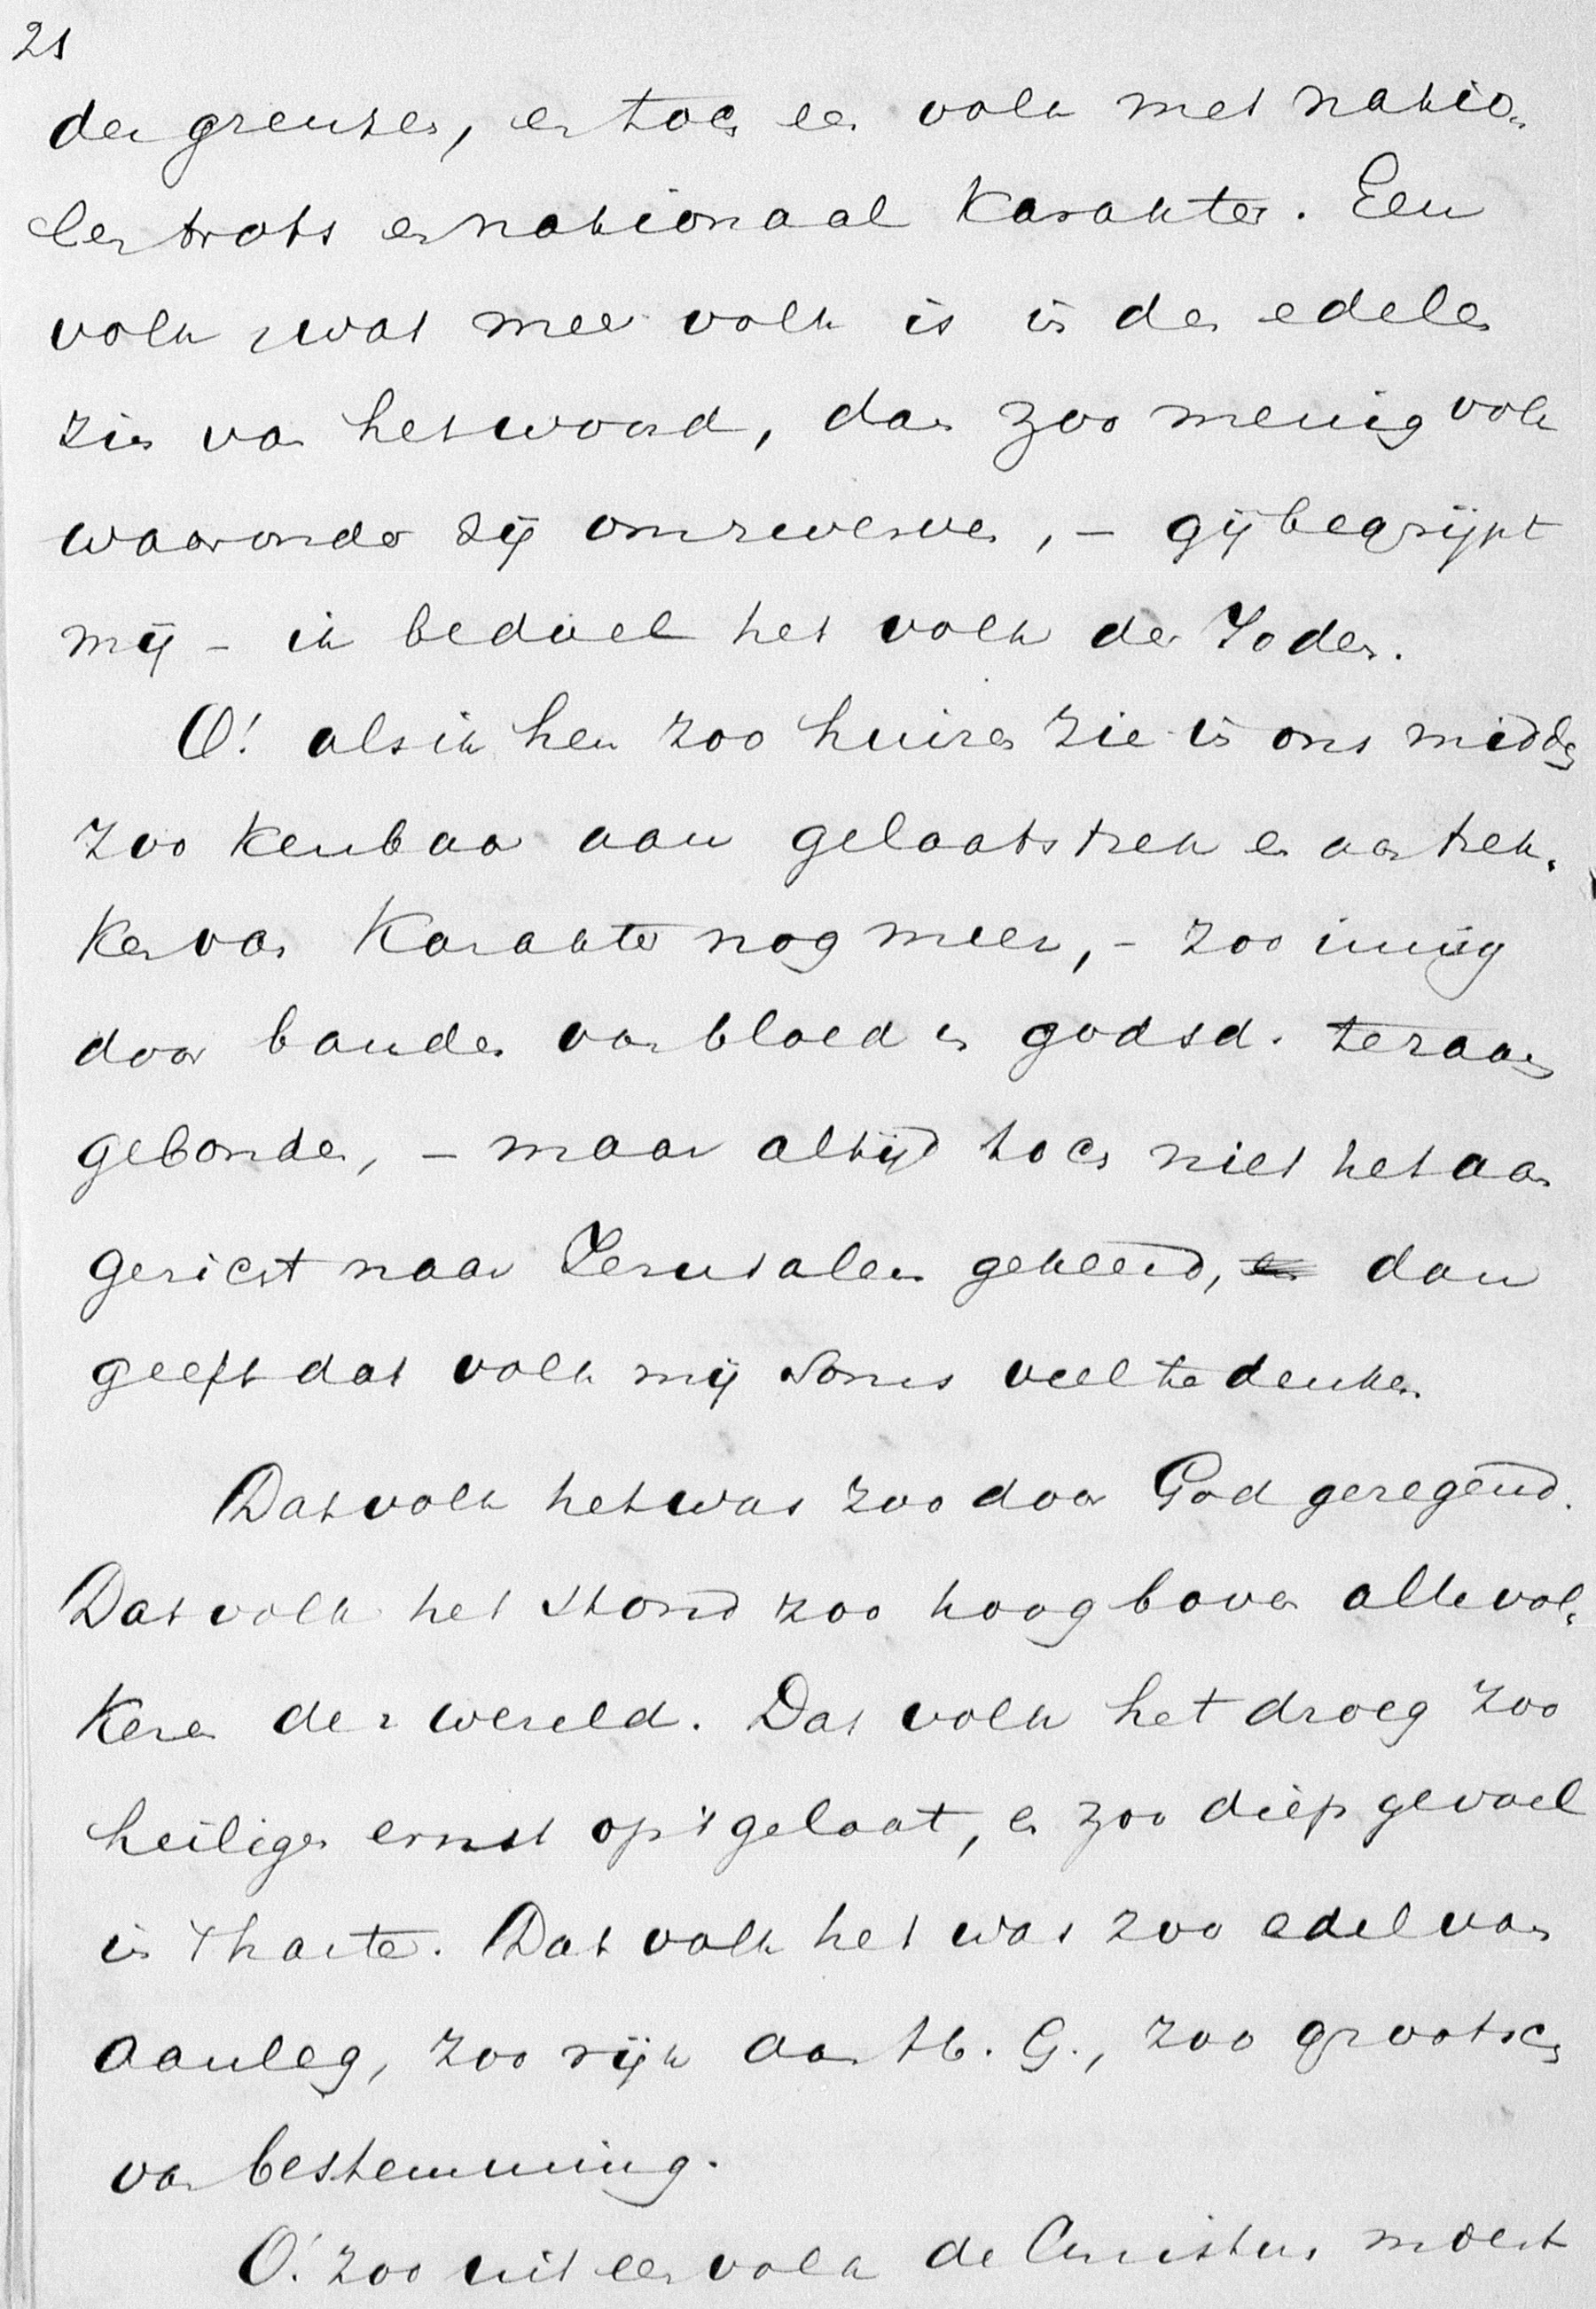 21
der grenzen, en toch een volk met natio-
len trots en nationaal karakter. Een
volk wat meer volk is in den edelen
zin van het woord, dan zoo menig volk
waaronder zij omzwerven, – gij begrijpt
mij – ik bedoel het volk der Joden.
O! als ik hen zoo huizen zie in ons midden
zoo kenbaar aan gelaatstrek en aan trek-
ken van karakter nog meer, – zoo innig
door banden van bloed en godsd. te zaam
gebonden, – maar altijd toch met het aan
gezicht naar Jeruzalem gekeerd, dan
geeft dat volk mij soms veel te denken.
Dat volk het was zoo door God gezegend.
Dat volk het stond zoo hoog boven alle vol-
keren der wereld. Dat volk het droeg zoo
heiligen ernst op 't gelaat, en zoo diep gevoel
in 't harte. Dat volk het was zoo edel van
aanleg, zoo rijk aan H. G., zoo grootsch
van bestemming.
O! zoo uit een volk de Christus moest